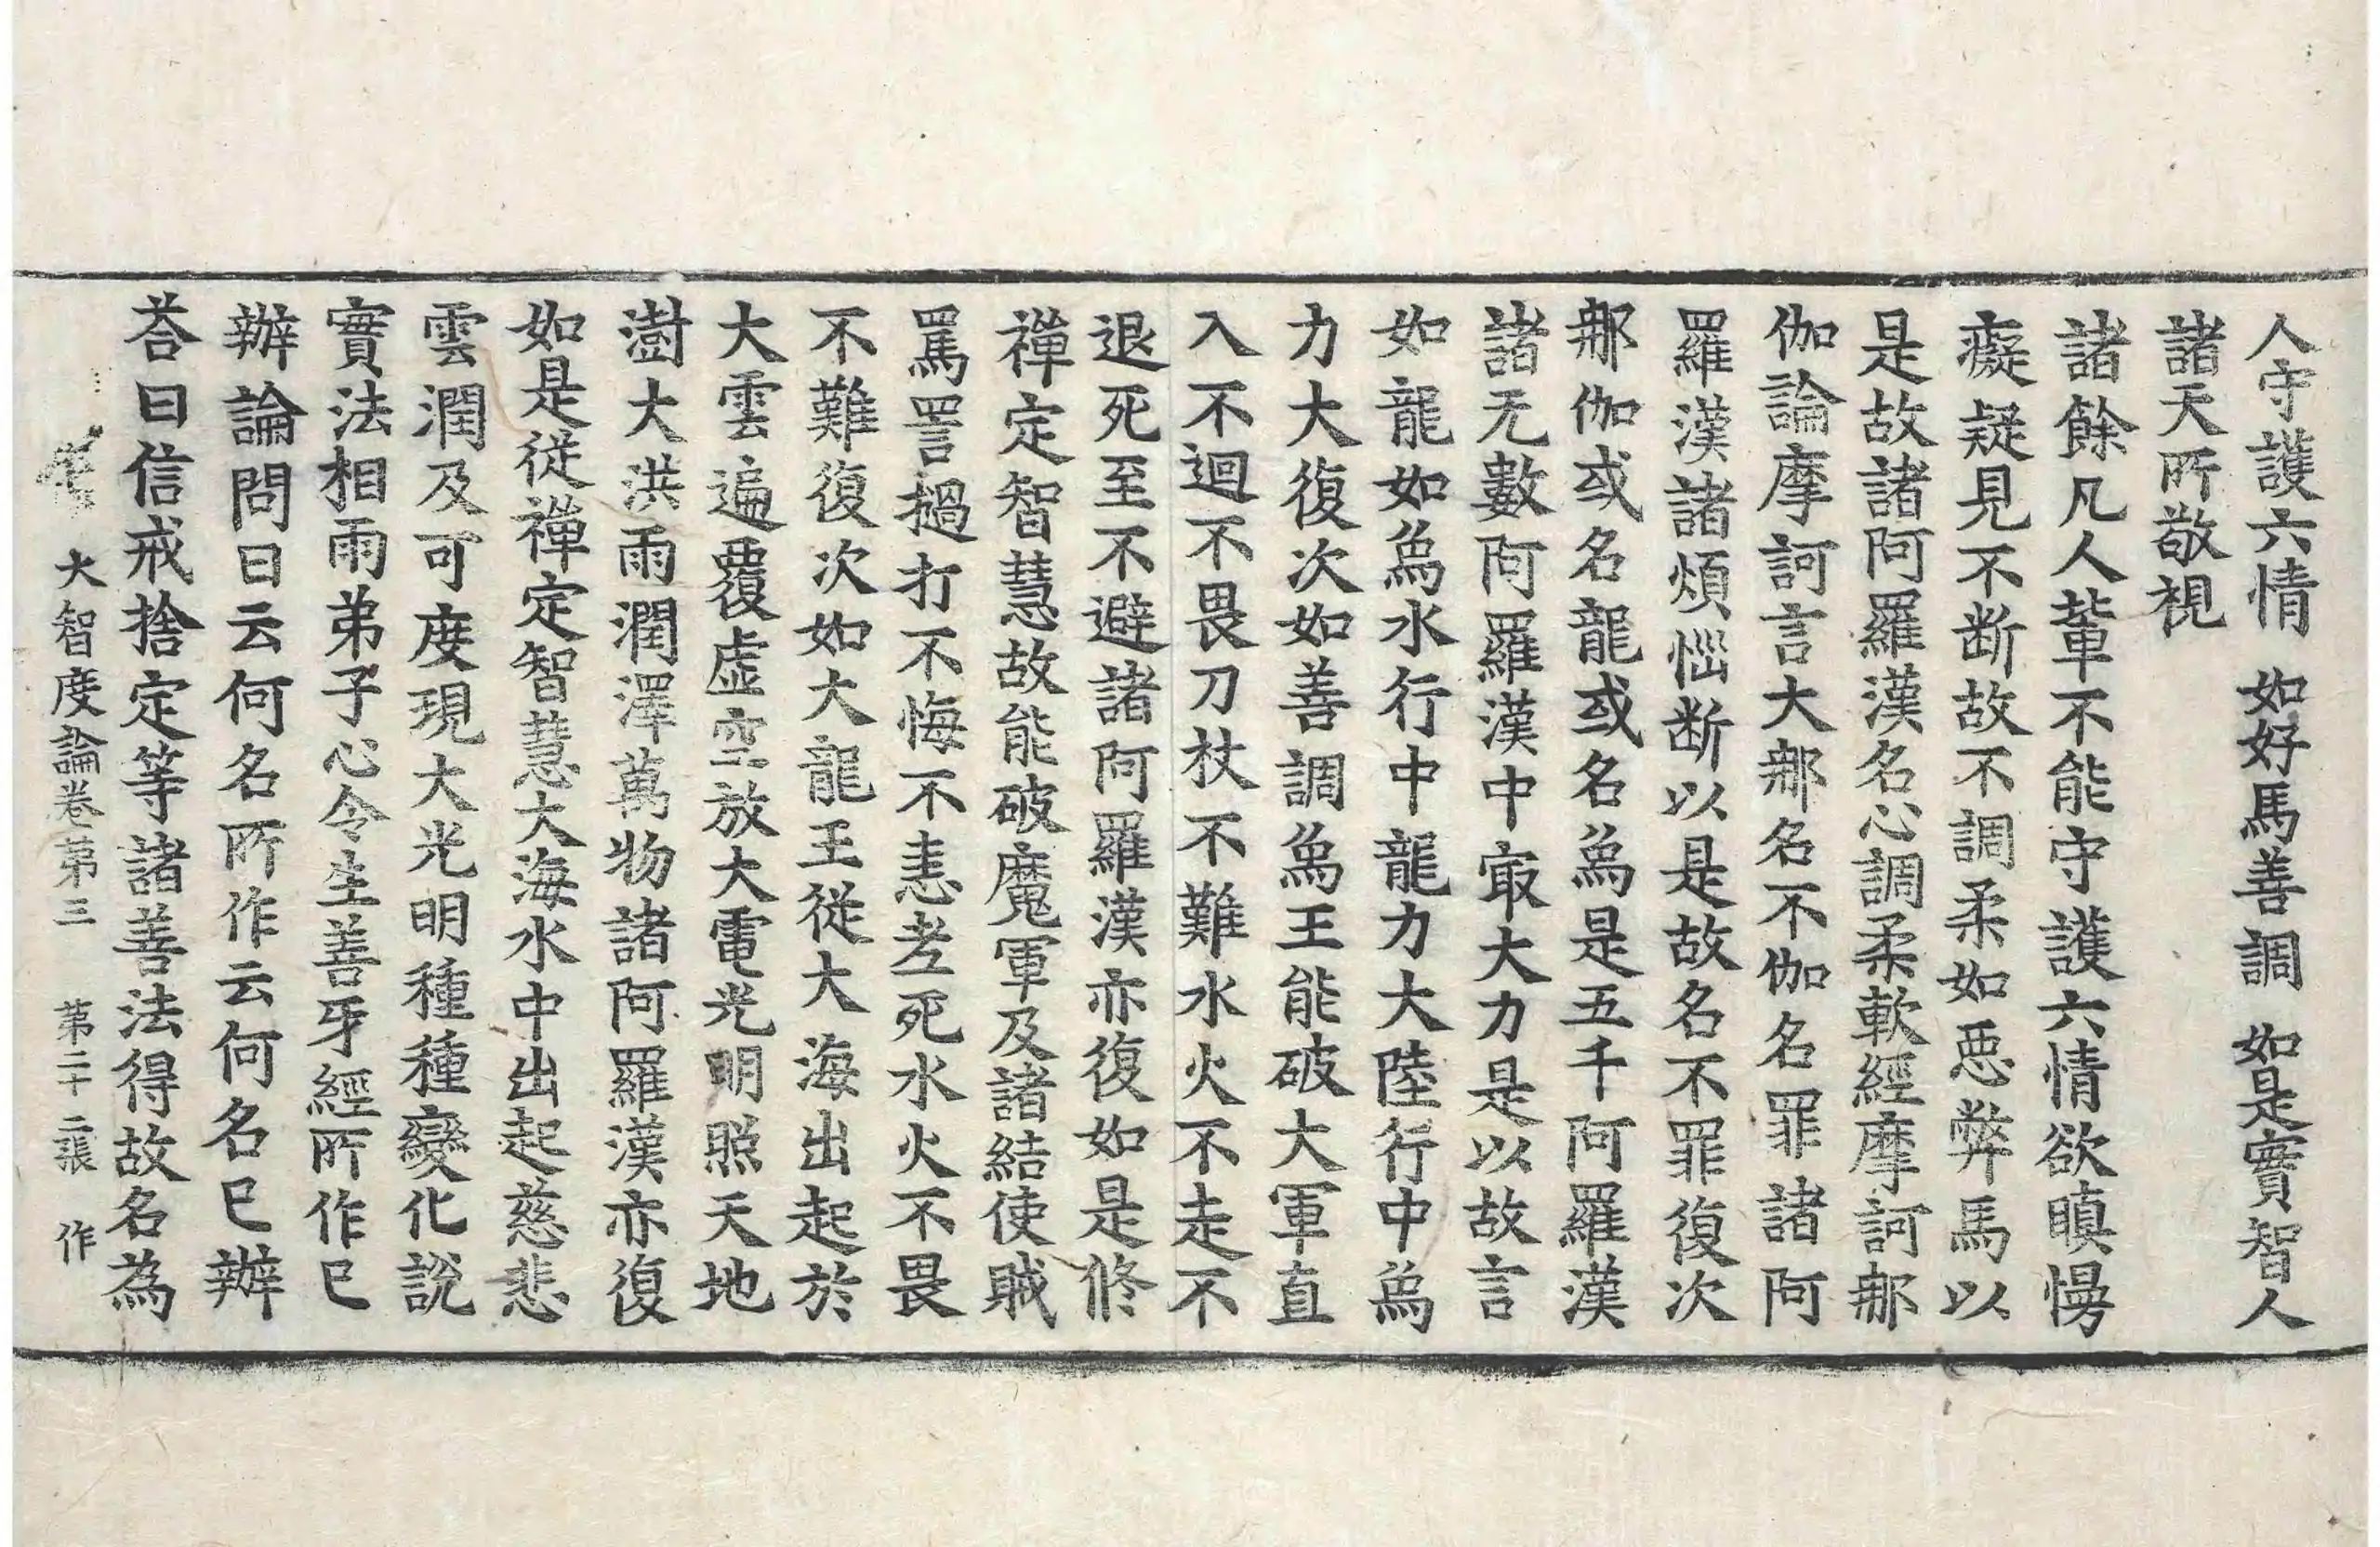 人守護六情　如好馬善調　如是實智人
諸天所敬視
諸餘凡人輩不能守護六情欲瞋慢
癡疑見不断故不調柔如惡弊馬以
是故諸阿羅漢名心調柔軟經摩訶那
伽論摩訶言大那名不伽名罪諸阿
羅漢諸煩惱断以是故名不罪復次
那伽或名龍或名象是五千阿羅漢
諸无數阿羅漢中㝡大力是以故言
如龍如象水行中龍力大陸行中象
力大復次如善調象王能破大軍直
入不迴不畏刀杖不難水火不走不
退死至不避諸阿羅漢亦復如是修
禪定智慧故能破魔軍及諸結使賊
罵詈撾打不悔不恚老死水火不畏
不難復次如大龍王從大海出起於
大雲遍覆虛空放大電光明照天地
澍大洪雨潤澤萬物諸阿羅漢亦復
如是從禪定智慧大海水中出起慈悲
雲潤及可度現大光明種種變化說
實法相雨弟子心令生善牙經所作已
辦論問曰云何名所作云何名已辦
荅曰信戒捨定等諸善法得故名為
大智度論卷第三　第二十二張　作